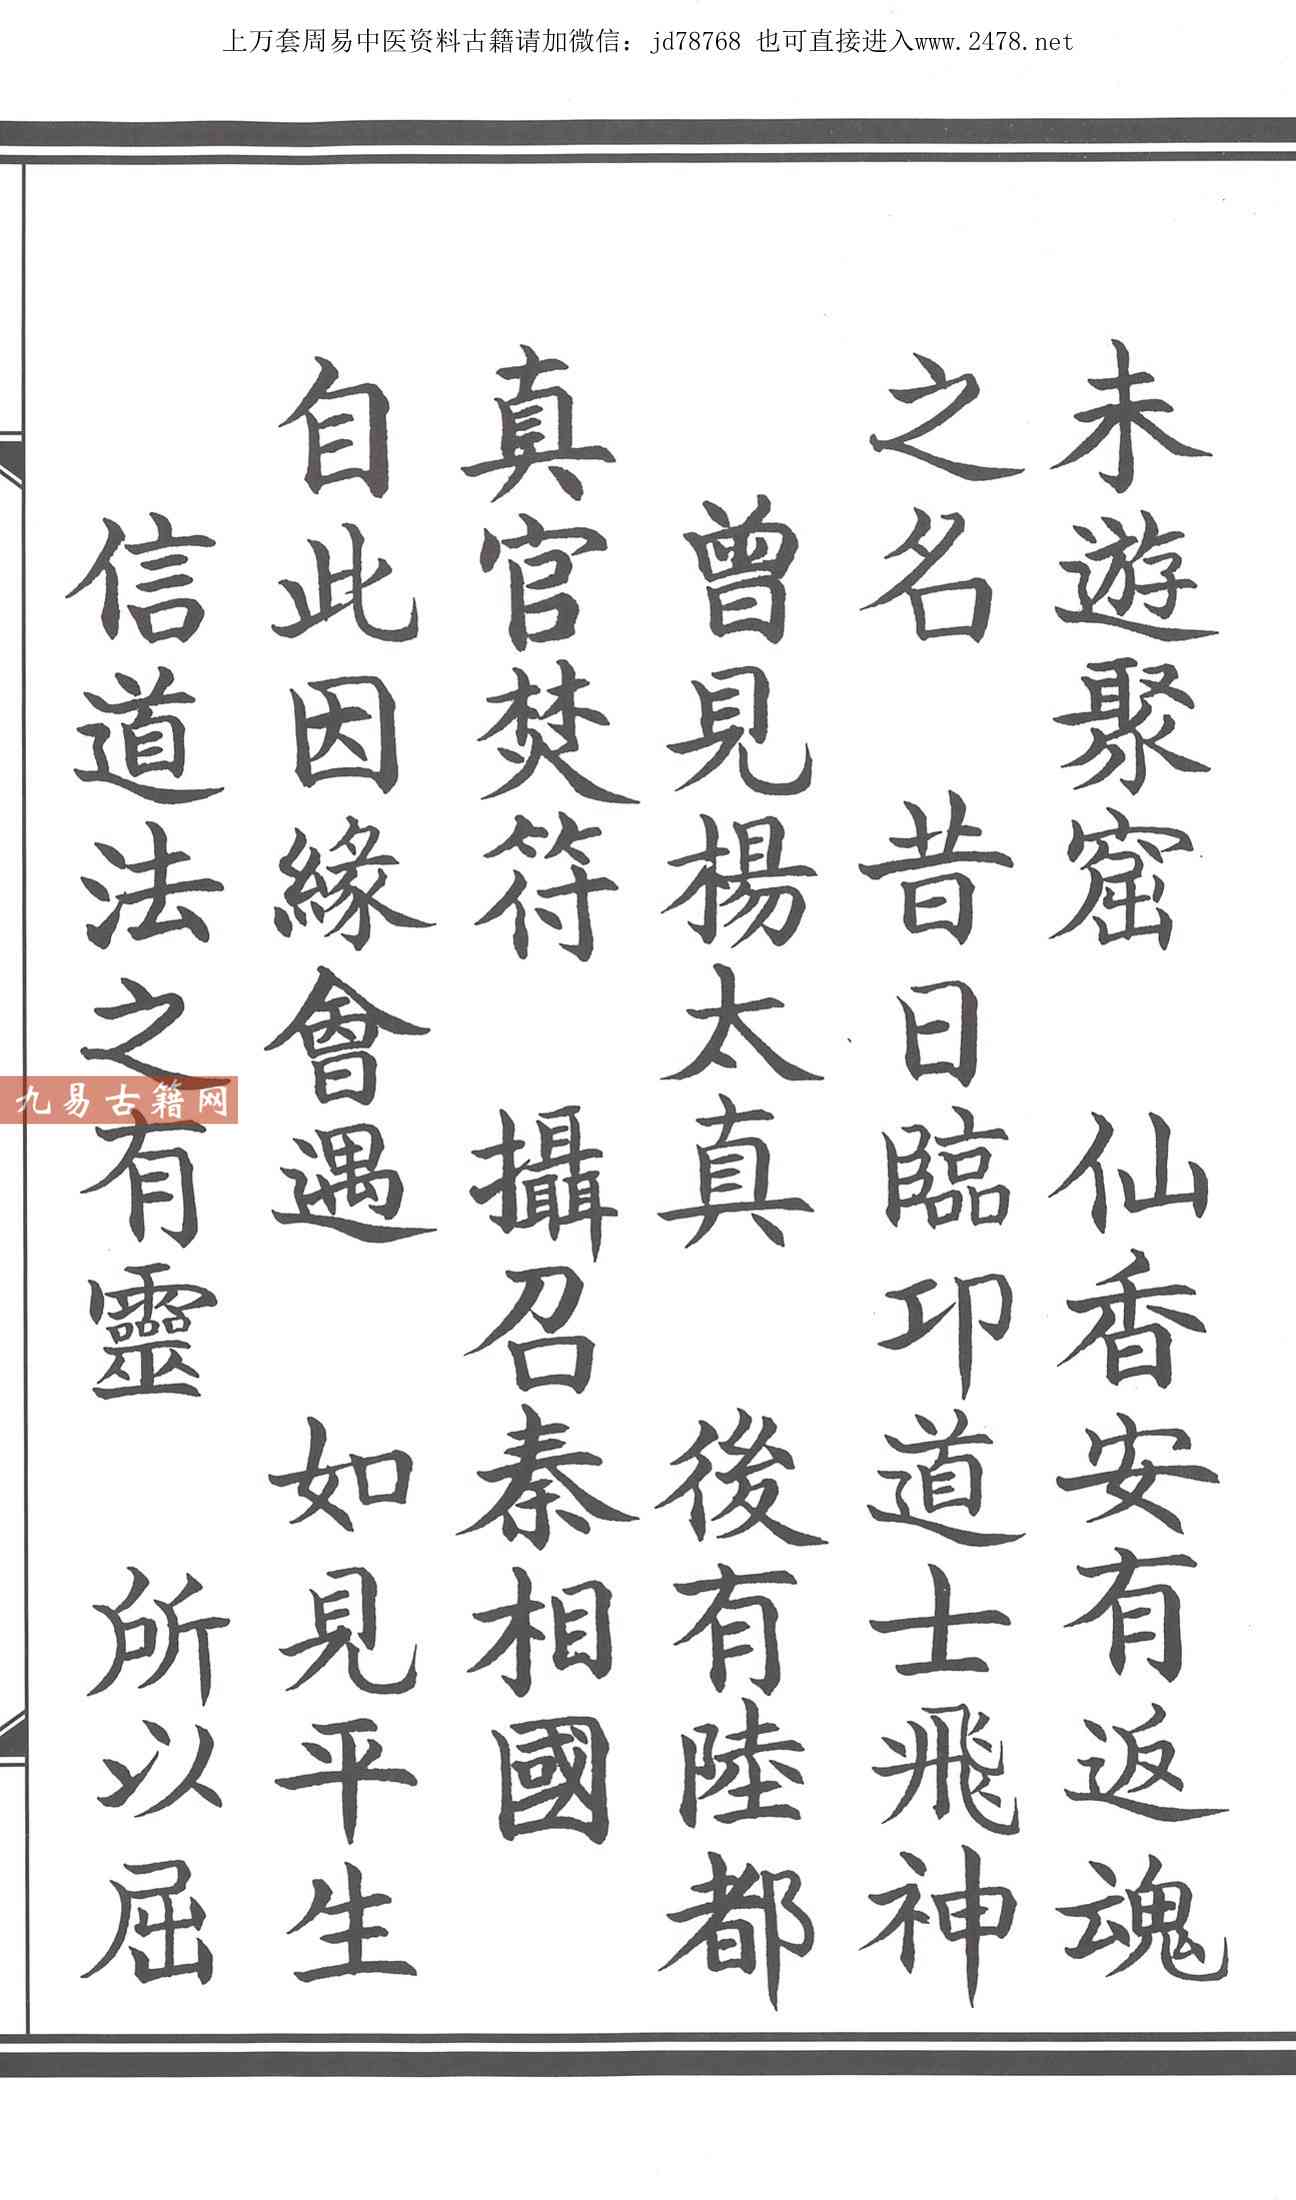 上万套周易中医资料古籍请加微信：jd78768 也可直接进入www.2478.net
未遊聚窟 仙香安有返魂
之名 昔日臨卭道士飛神
曾見楊太真 後有陸都
真官焚符 攝召秦相國
自此因緣會遇 如見平生
信道法之有靈 所以屈
九易古籍网